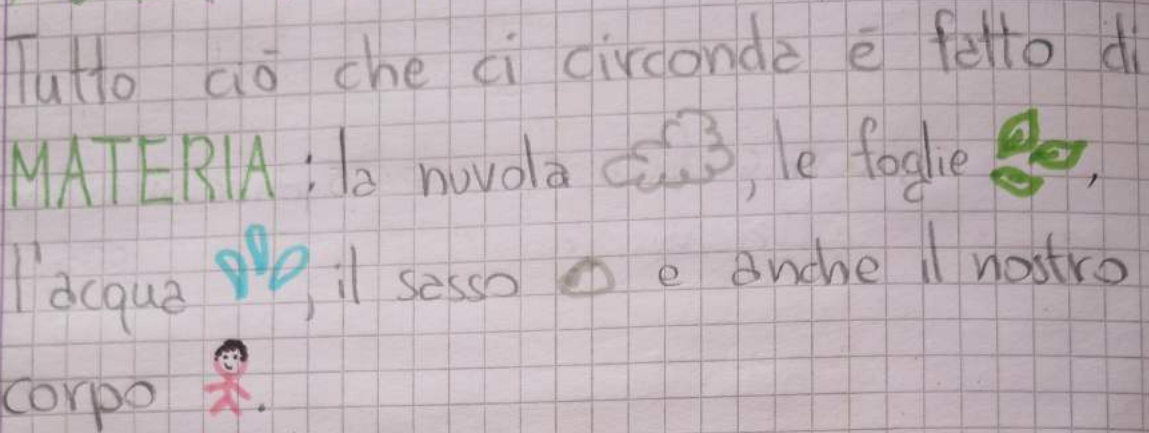 Tutto ciò che ci circonda è fatto di
MATERIA: la nuvola , le foglie ,
l'acqua , il sasso e anche il nostro
corpo .